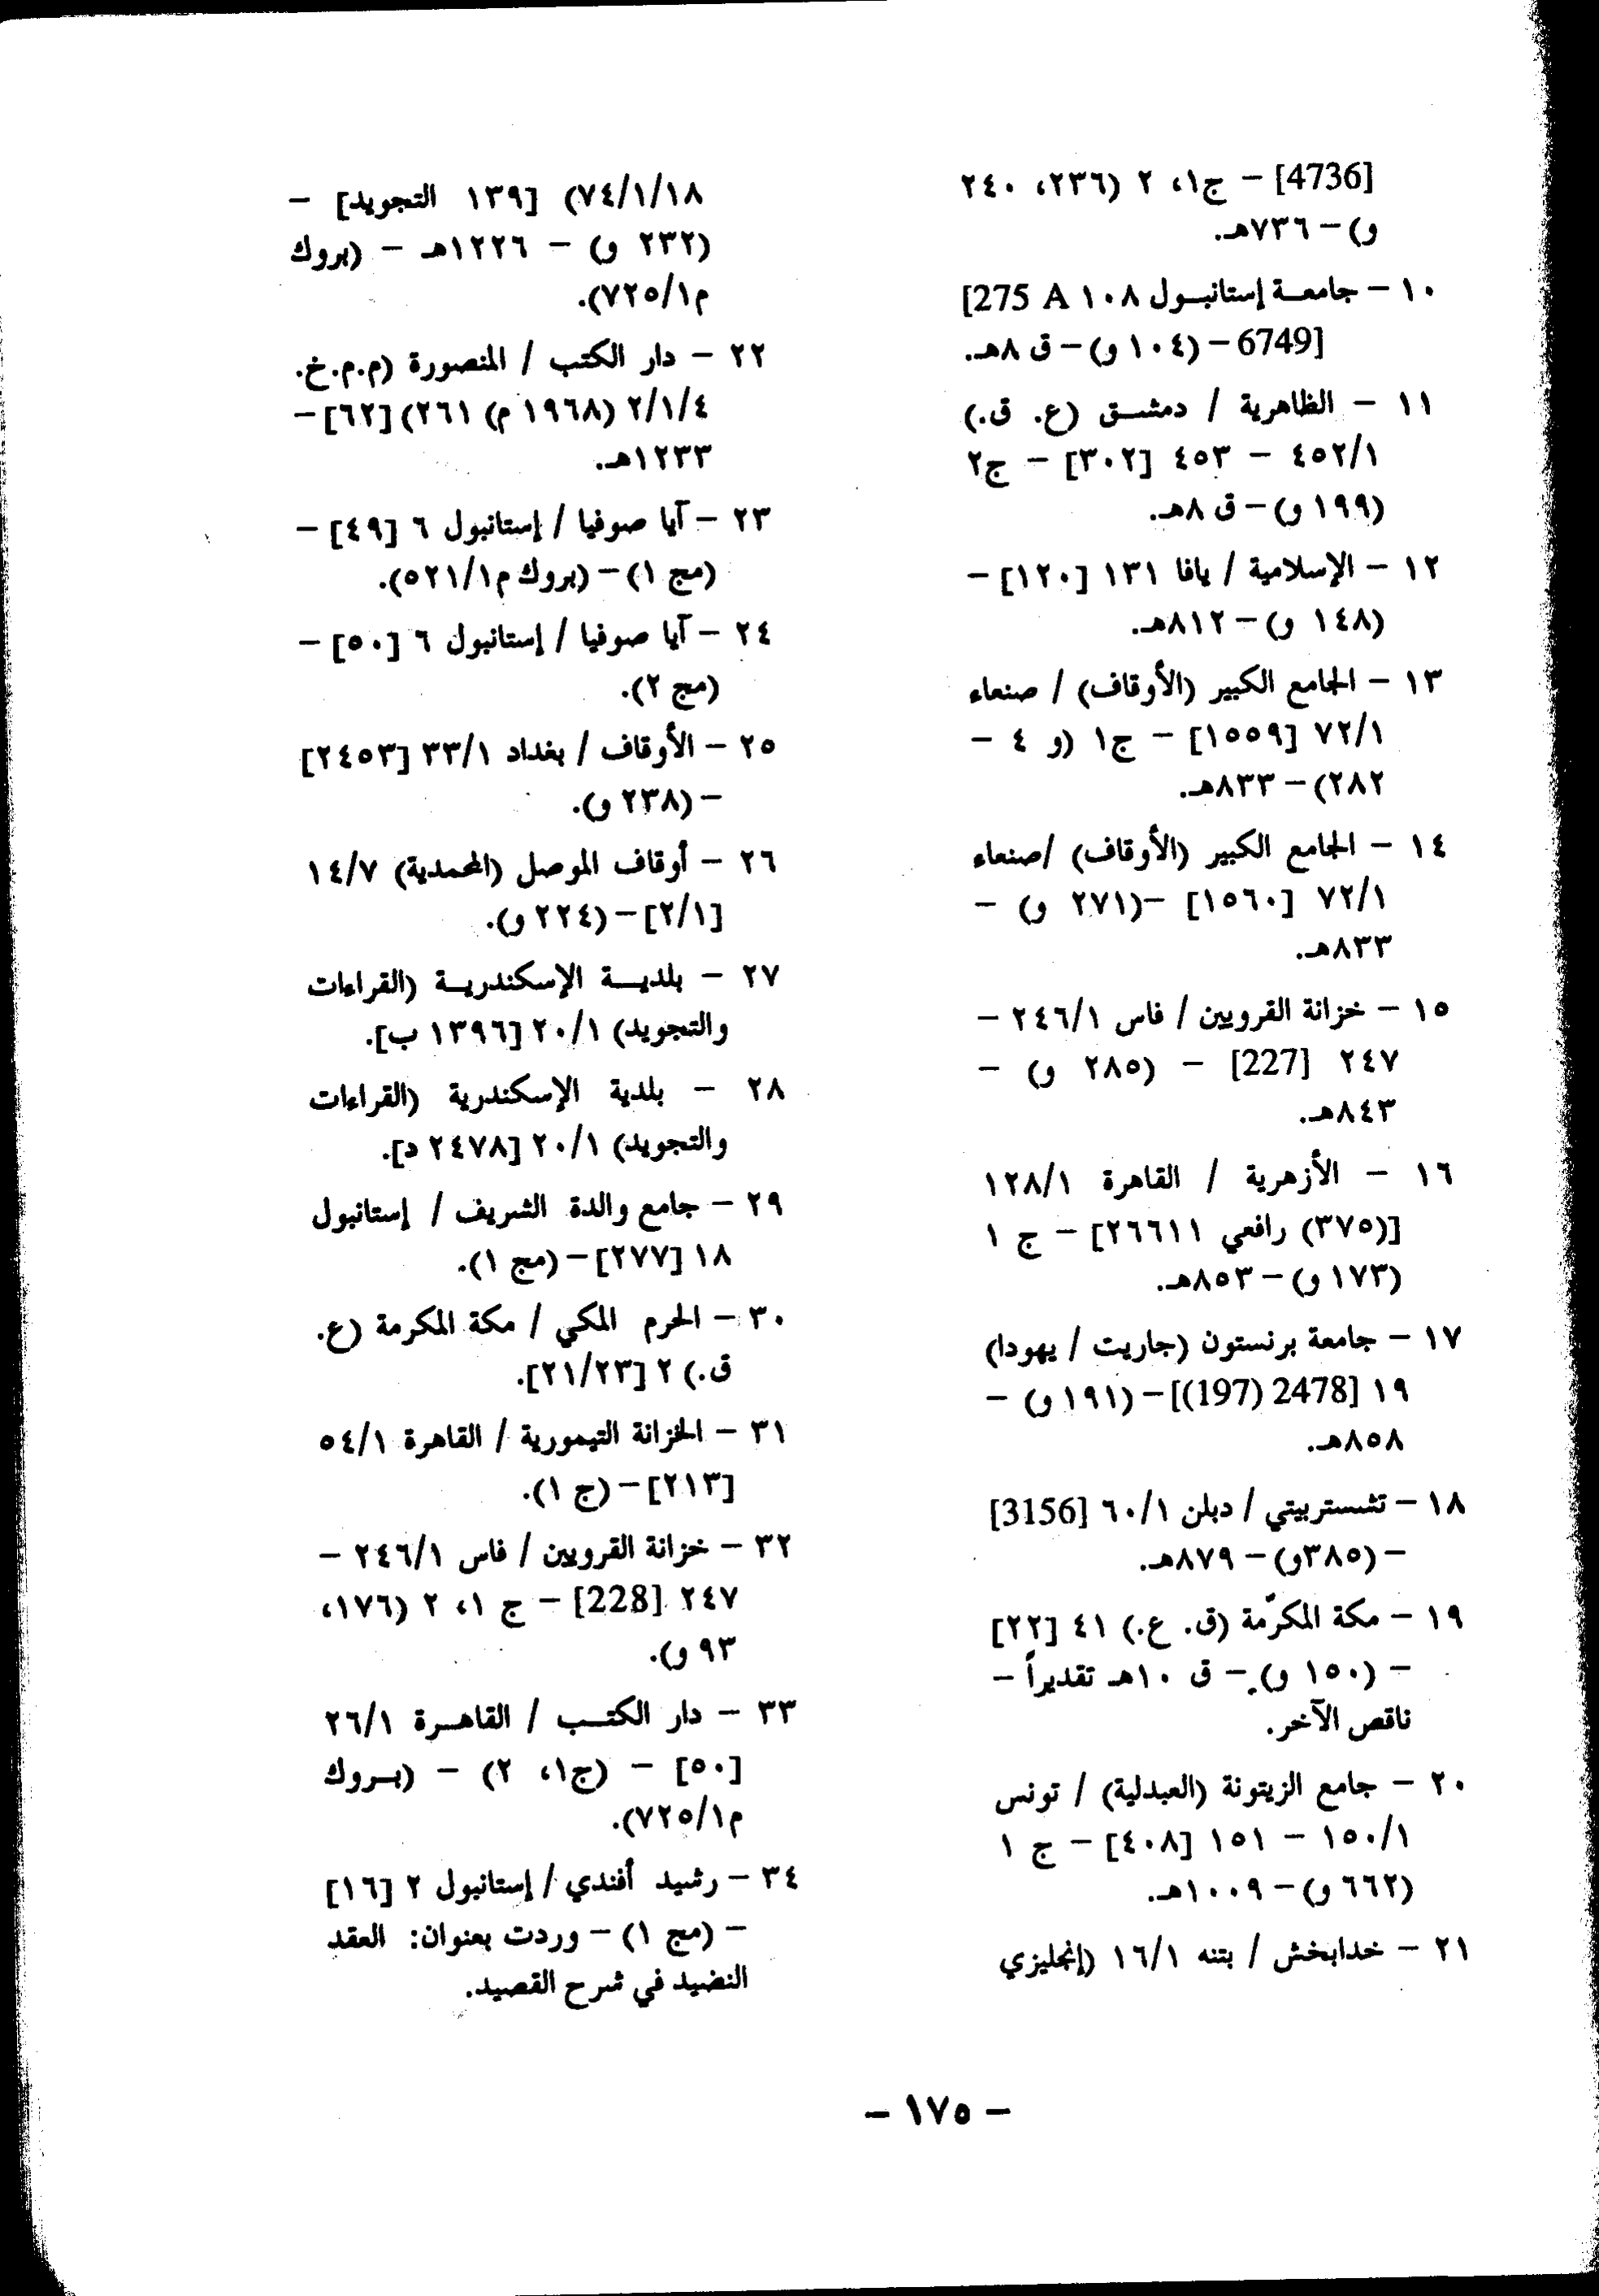 [4736] – ج١، ٢ (٢٣٦، ٢٤٠
و) – ٧٣٦هـ.
١٠ – جامعـة إستانبـول ١٠٨ 275 A]
6749] – (١٠٤ و) – ق ٨هـ.
١١ – الظاهرية / دمشـق (ع. ق.)
٤٥٢/١ – ٤٥٣ [٣٠٢] – ج٢
(١٩٩ و) – ق ٨هـ.
١٢ – الإسلامية / يافا ١٣١ [١٢٠] –
(١٤٨ و) – ٨١٢هـ.
١٣ – الجامع الكبير (الأوقاف) / صنعاء
٧٢/١ [١٥٥٩] – ج١ (و ٤ –
٢٨٢) – ٨٣٣هـ.
١٤ – الجامع الكبير (الأوقاف) /صنعاء
٧٢/١ [١٥٦٠] –(٢٧١ و) –
٨٣٣هـ.
١٥ – خزانة القرويين / فاس ٢٤٦/١ –
٢٤٧ [227] – (٢٨٥ و) –
٨٤٣هـ.
١٦ – الأزهرية / القاهرة ١٢٨/١
[(٣٧٥) رافعي ٢٦٦١١] – ج ١
(١٧٣ و) – ٨٥٣هـ.
١٧ – جامعة برنستون (جاريت / يهودا)
١٩ [2478 (197)] – (١٩١ و) –
٨٥٨هـ.
١٨ – تشستربيتي / دبلن ٦٠/١ [3156]
– (٣٨٥و) – ٨٧٩هـ.
١٩ – مكة المكرّمة (ق. ع.) ٤١ [٢٢]
– (١٥٠ و) – ق ١٠هـ تقديراً –
ناقص الآخر.
٢٠ – جامع الزيتونة (العبدلية) / تونس
١٥٠/١ – ١٥١ [٤٠٨] – ج ١
(٦٦٢ و) – ١٠٠٩هـ.
٢١ – خدابخش / بتنه ١٦/١ (إنجليزي
٧٤/١/١٨) [١٣٩ التجويد] –
(٢٣٢ و) – ١٢٢٦هـ – (بروك
م٧٢٥/١).
٢٢ – دار الكتب / المنصورة (م.م.خ.
٢/١/٤ (١٩٦٨ م) ٢٦١) [٦٢] –
١٢٣٣هـ.
٢٣ – آيا صوفيا / إستانبول ٦ [٤٩] –
(مج ١) – (بروك م٥٢١/١).
٢٤ – آيا صوفيا / إستانبول ٦ [٥٠] –
(مج ٢).
٢٥ – الأوقاف / بغداد ٣٣/١ [٢٤٥٣]
– (٢٣٨ و).
٢٦ – أوقاف الموصل (المحمدية) ١٤/٧
[٢/١] – (٢٢٤ و).
٢٧ – بلديـة الإسكندريـة (القراءات
والتجويد) ٢٠/١ [١٣٩٦ ب].
٢٨ – بلدية الإسكندرية (القراءات
والتجويد) ٢٠/١ [٢٤٧٨ د].
٢٩ – جامع والدة الشريف / إستانبول
١٨ [٢٧٧] – (مج ١).
٣٠ – الحرم المكي / مكة المكرمة (ع.
ق.) ٢ [٢١/٢٣].
٣١ – الخزانة التيمورية / القاهرة ٥٤/١
[٢١٣] – (ج ١).
٣٢ – خزانة القرويين / فاس ٢٤٦/١ –
٢٤٧ [228] – ج ١، ٢ (١٧٦،
٩٣ و).
٣٣ – دار الكتـب / القاهـرة ٢٦/١
[٥٠] – (ج١، ٢) – (بـروك
م٧٢٥/١).
٣٤ – رشيد أفندي / إستانبول ٢ [١٦]
– (مج ١) – وردت بعنوان: العقد
النضيد في شرح القصيد.
– ١٧٥ –